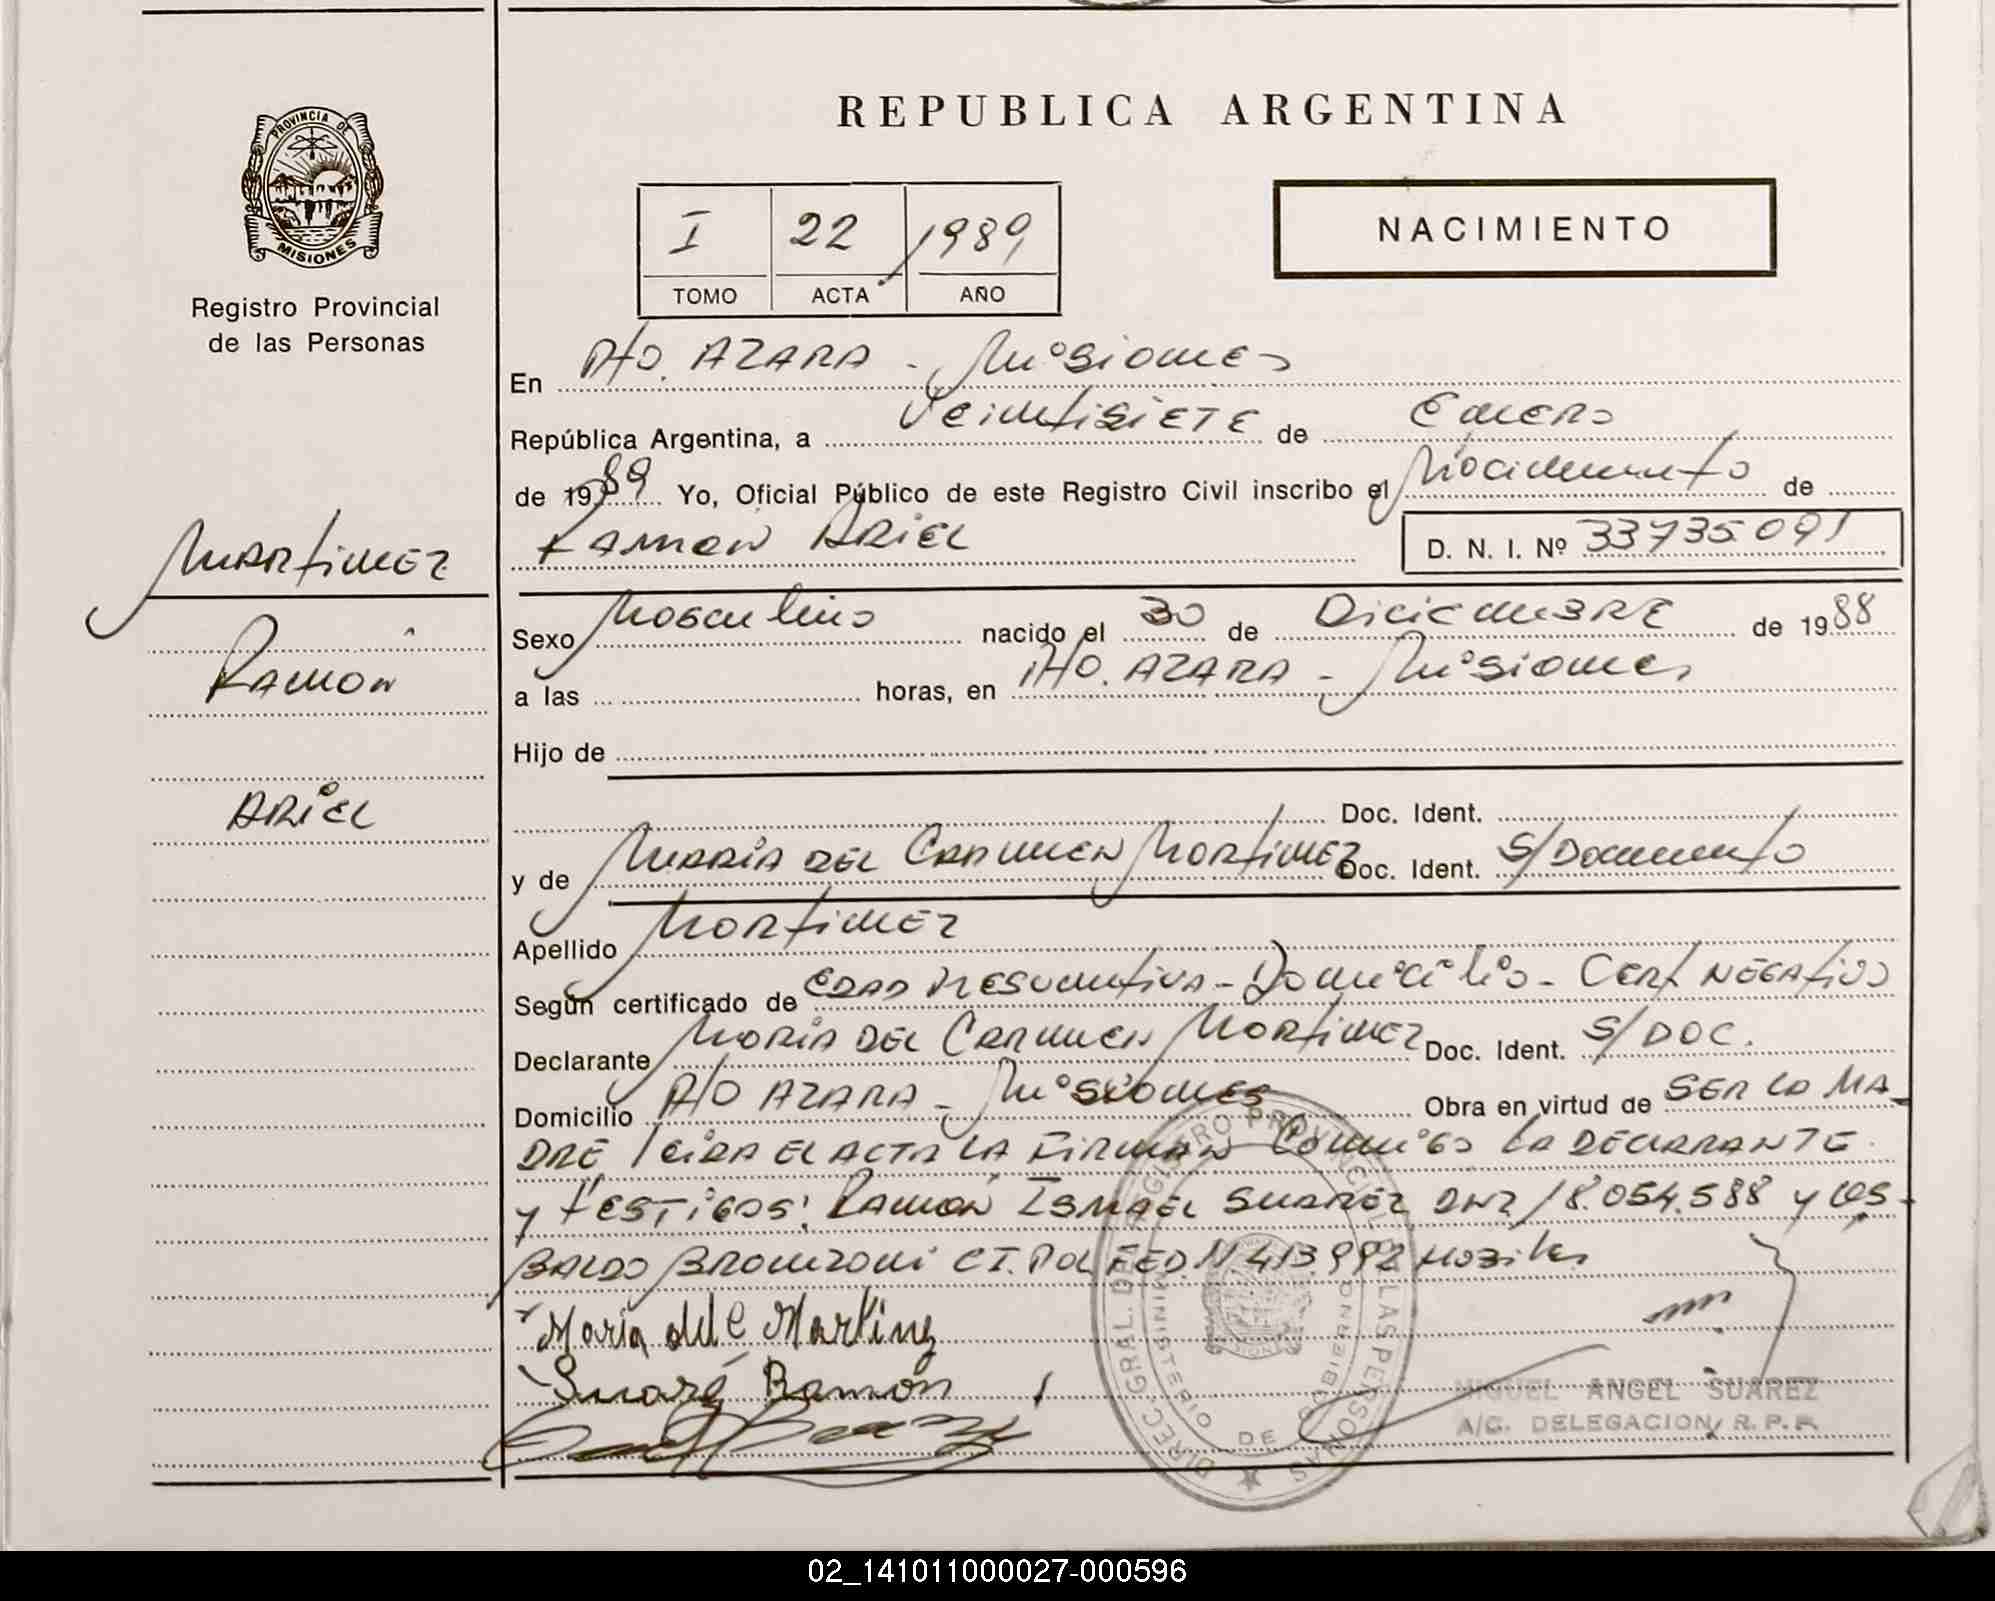 REPUBLICA ARGENTINA
PROVINCIA DE
MISIONES
Registro Provincial
de las Personas
I 22 1989
TOMO ACTA AÑO
NACIMIENTO
En Pto. AZARA - Misiones
República Argentina, a Veintisiete de Enero
de 1989 Yo, Oficial Público de este Registro Civil inscribo el Nacimiento de
Ramón Ariel D. N. I. Nº 33735091
Martinez
Ramón
Ariel
Sexo Masculino nacido el 30 de Diciembre de 1988
a las horas, en Pto. AZARA - Misiones
Hijo de
Doc. Ident.
y de María del Carmen Martinez Doc. Ident. S/Documento
Apellido Martinez
Según certificado de Edad Presuntiva - Domicilio - Cert Negativo
Declarante María del Carmen Martinez Doc. Ident. S/DOC.
Domicilio Pto AZARA - Misiones Obra en virtud de ser la ma-
dre leida el acta la firman conmigo la declarante
y testigos: Ramón Ismael Suarez DNI 18.054.588 y Os-
baldo Bronzoni C I. Pol Fed. N 413.992
Maria del C Martinez
Suaré Ramón
DIREC. GRAL. DEL REGISTRO PROVINCIAL DE LAS PERSONAS
MINISTERIO DE GOBIERNO
MIGUEL ANGEL SUAREZ
A/C. DELEGACION R. P. P.
02_141011000027-000596